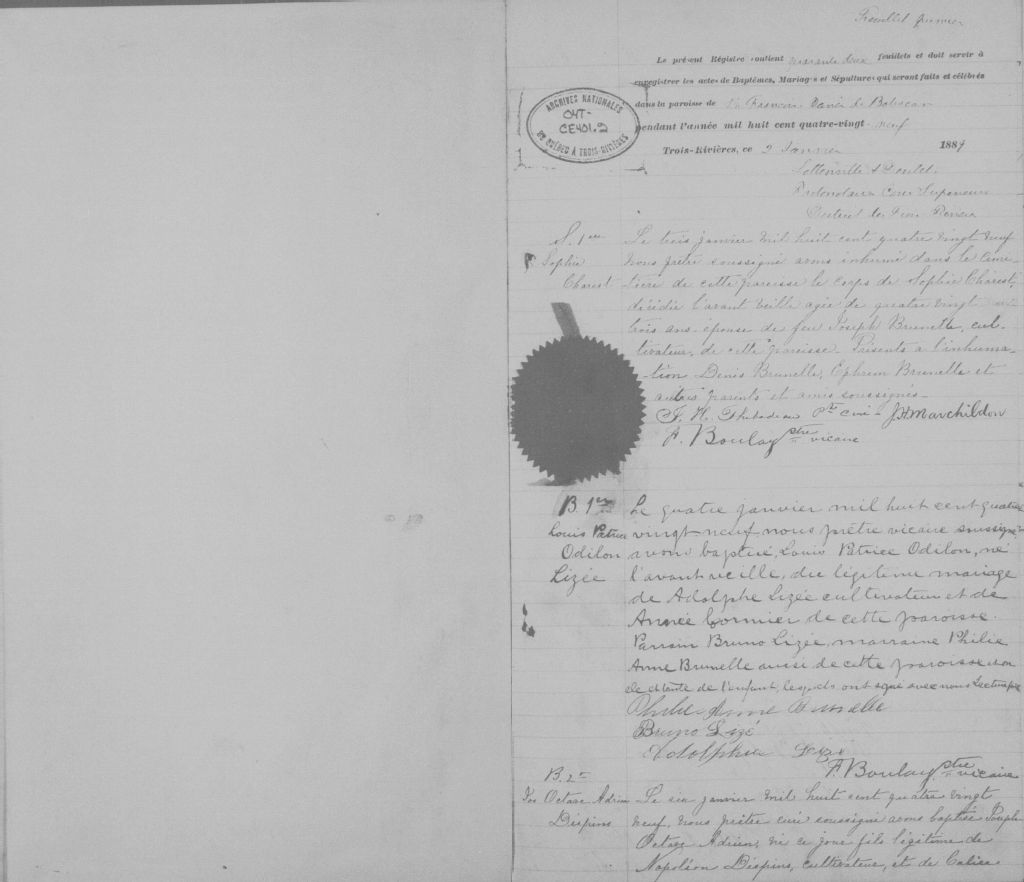 Feuillet premier
Le présent Régistre contient quarante deux feuillets et doit servir à
enregistrer les actes de Baptêmes, Mariages et Sépultures qui seront faits et célébrés
dans la paroisse de St François Xavier de Batiscan
pendant l'année mil huit cent quatre-vingt neuf
Trois-Rivières, ce 2 Janvier 1889
ARCHIVES NATIONALES
04T-
CE401.2
DU QUÉBEC À TROIS-RIVIÈRES
Protonotaire Cour Supérieure
District des Trois Rivières
S. 1ère
Sophie
Charest
Le trois janvier mil huit cent quatre vingt neuf
nous prêtre soussigné avons inhumé dans le cime-
tière de cette paroisse le corps de Sophie Charest,
décédée l'avant veille agée de quatre vingt
trois ans épouse de feu Joseph Brunelle, cul-
tivateur, de cette paroisse. Présents a l'inhuma-
-tion Denis Brunelle, Ephrem Brunelle et
autres parents et amis soussignés.
J. H. Thibodeau Ptre curé - J.H Marchildon
F. Boulay ptre vicaire
B. 1er
Louis Patrice
Odilon
Lizée
Le quatre janvier mil huit cent quatre
vingt neuf nous prêtre vicaire soussigné
avons baptisé, Louis Patrice Odilon, né
l'avant veille, du légitime mariage
de Adolphe Lizée cultivateur et de
Année Cormier de cette paroisse.
Parrain Bruno Lizée, marraine Philie
Anne Brunelle aussi de cette paroisse
et tante de l'enfant, lesquels ont signé avec nous Lecture faite
Philie Anne Brunelle
Bruno Lizé
Adolphe Lizé
F. Boulay ptre vicaire
B. 2e
Jos Octave Adrien
Déspins
Le six janvier mil huit cent quatre vingt
neuf, nous prêtre curé soussigné avons baptisé Joseph
Octave Adrien, né ce jour fils légitime de
Napoléon Déspins, cultivateur, et de